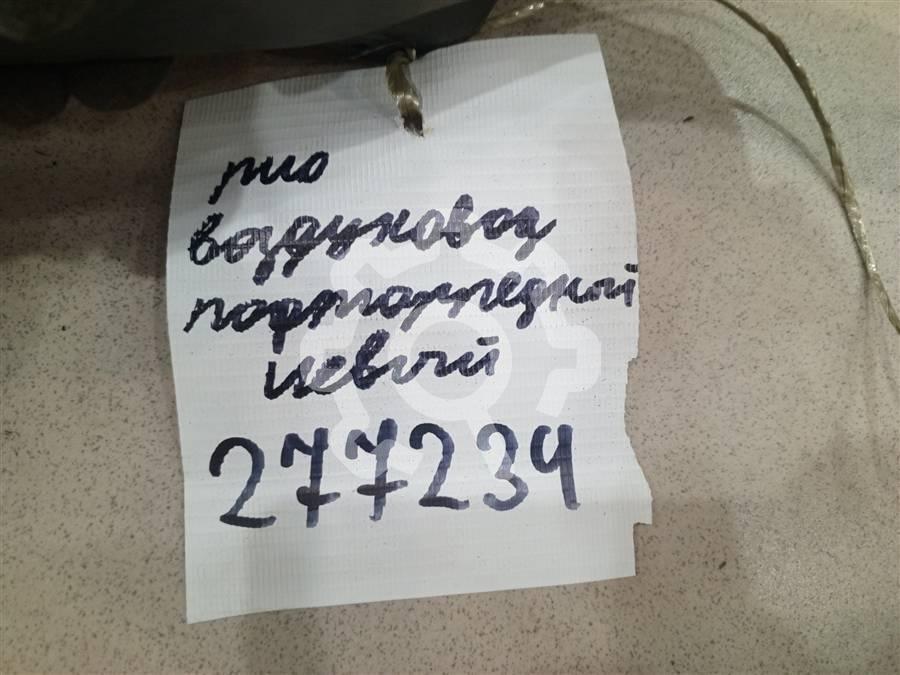 рио
воздуховод
торпедный
левый
277234